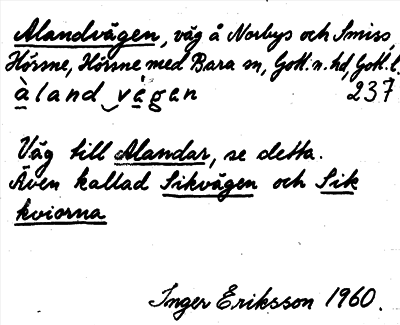 Alandvägen, väg å Norbys och Smiss,
Hörsne, Hörsne med Bara sn, Gotl. n. hd, Gotl. l.
àland vägan 237
Väg till Alandar, se detta.
Även kallad Sikvägen och Sik
kviorna
Inger Eriksson 1960.